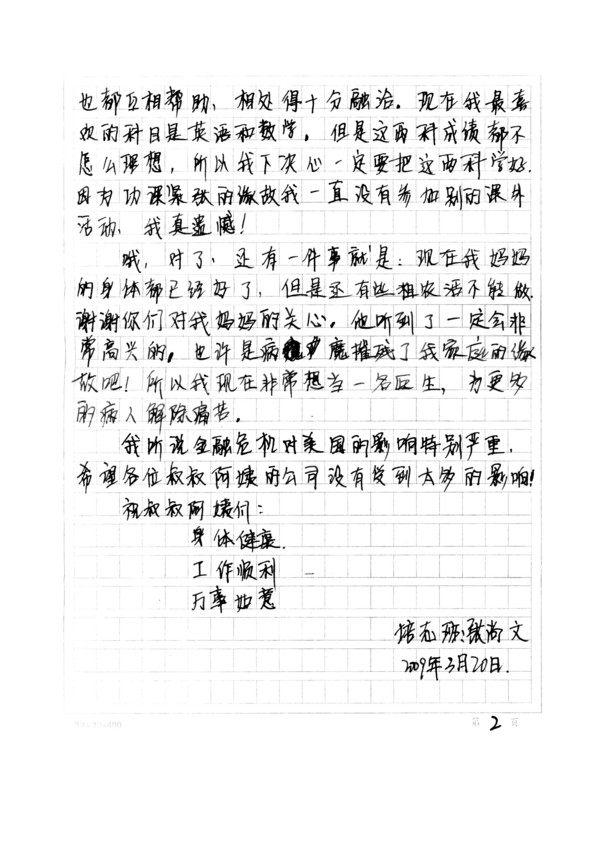 也都互相帮助，相处得十分融洽。现在我最喜
欢的科目是英语和数学。但是这两科成绩都不
怎么理想，所以我下决心一定要把这两科学好.
因为功课紧张的缘故我一直没有参加别的课外
活动，我真遗憾！
哦，对了，还有一件事就是：现在我妈妈
的身体都已经好了，但是还有些粗农活不能做.
谢谢你们对我妈妈的关心。他听到了一定会非
常高兴的。也许是病魔摧残了我家庭的缘
故吧！所以我现在非常想当一名医生，为更多
的病人解除痛苦。
我听说金融危机对美国的影响特别严重，
希望各位叔叔阿姨的公司没有受到太多的影响！
祝叔叔阿姨们：
身体健康.
工作顺利
万事如意
培志班：张尚文
2009年3月20日.
第 2 页